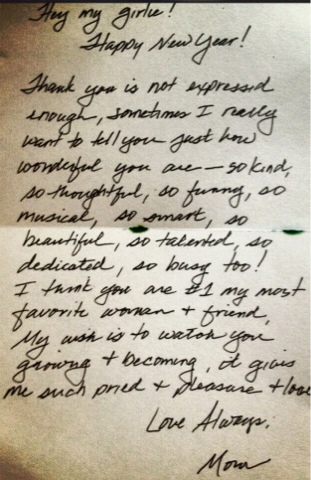 Hey my girlie!
Happy New Year!
Thank you is not expressed
enough, sometimes I really
want to tell you just how
wonderful you are — so kind,
so thoughtful, so funny, so
musical, so smart, so
beautiful, so talented, so
dedicated, so busy too!
I think you are #1 my most
favorite woman + friend.
My wish is to watch you
growing + becoming, it gives
me such pried + pleasure + love
Love Always,
Mom